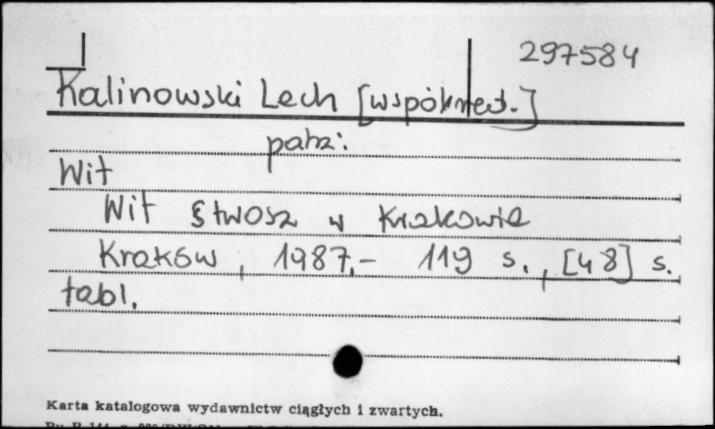 297584
Kalinowski Lech [współred.]
patrz:
Wit
Wit Stwosz w Krakowie
Kraków, 1987.- 119 s., [48] s.
tabl.
Karta katalogowa wydawnictw ciągłych i zwartych.